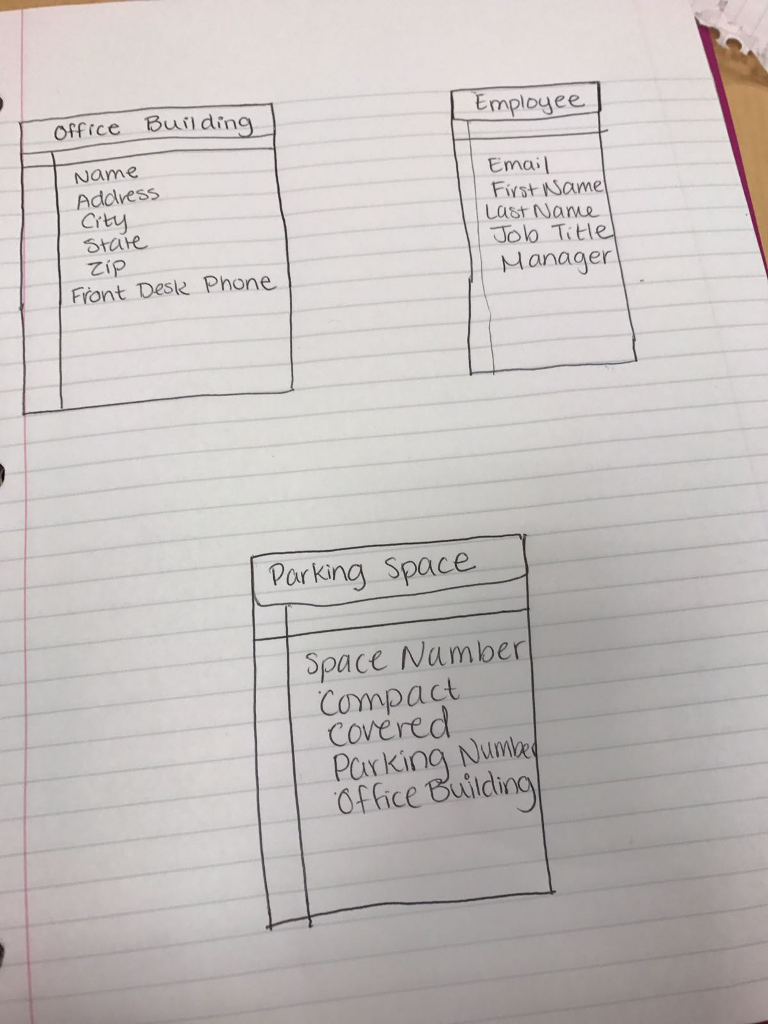 Office Building
Name
Address
City
State
Zip
Front Desk Phone
Employee
Email
First Name
Last Name
Job Title
Manager
Parking Space
Space Number
Compact
Covered
Parking Number
Office Building